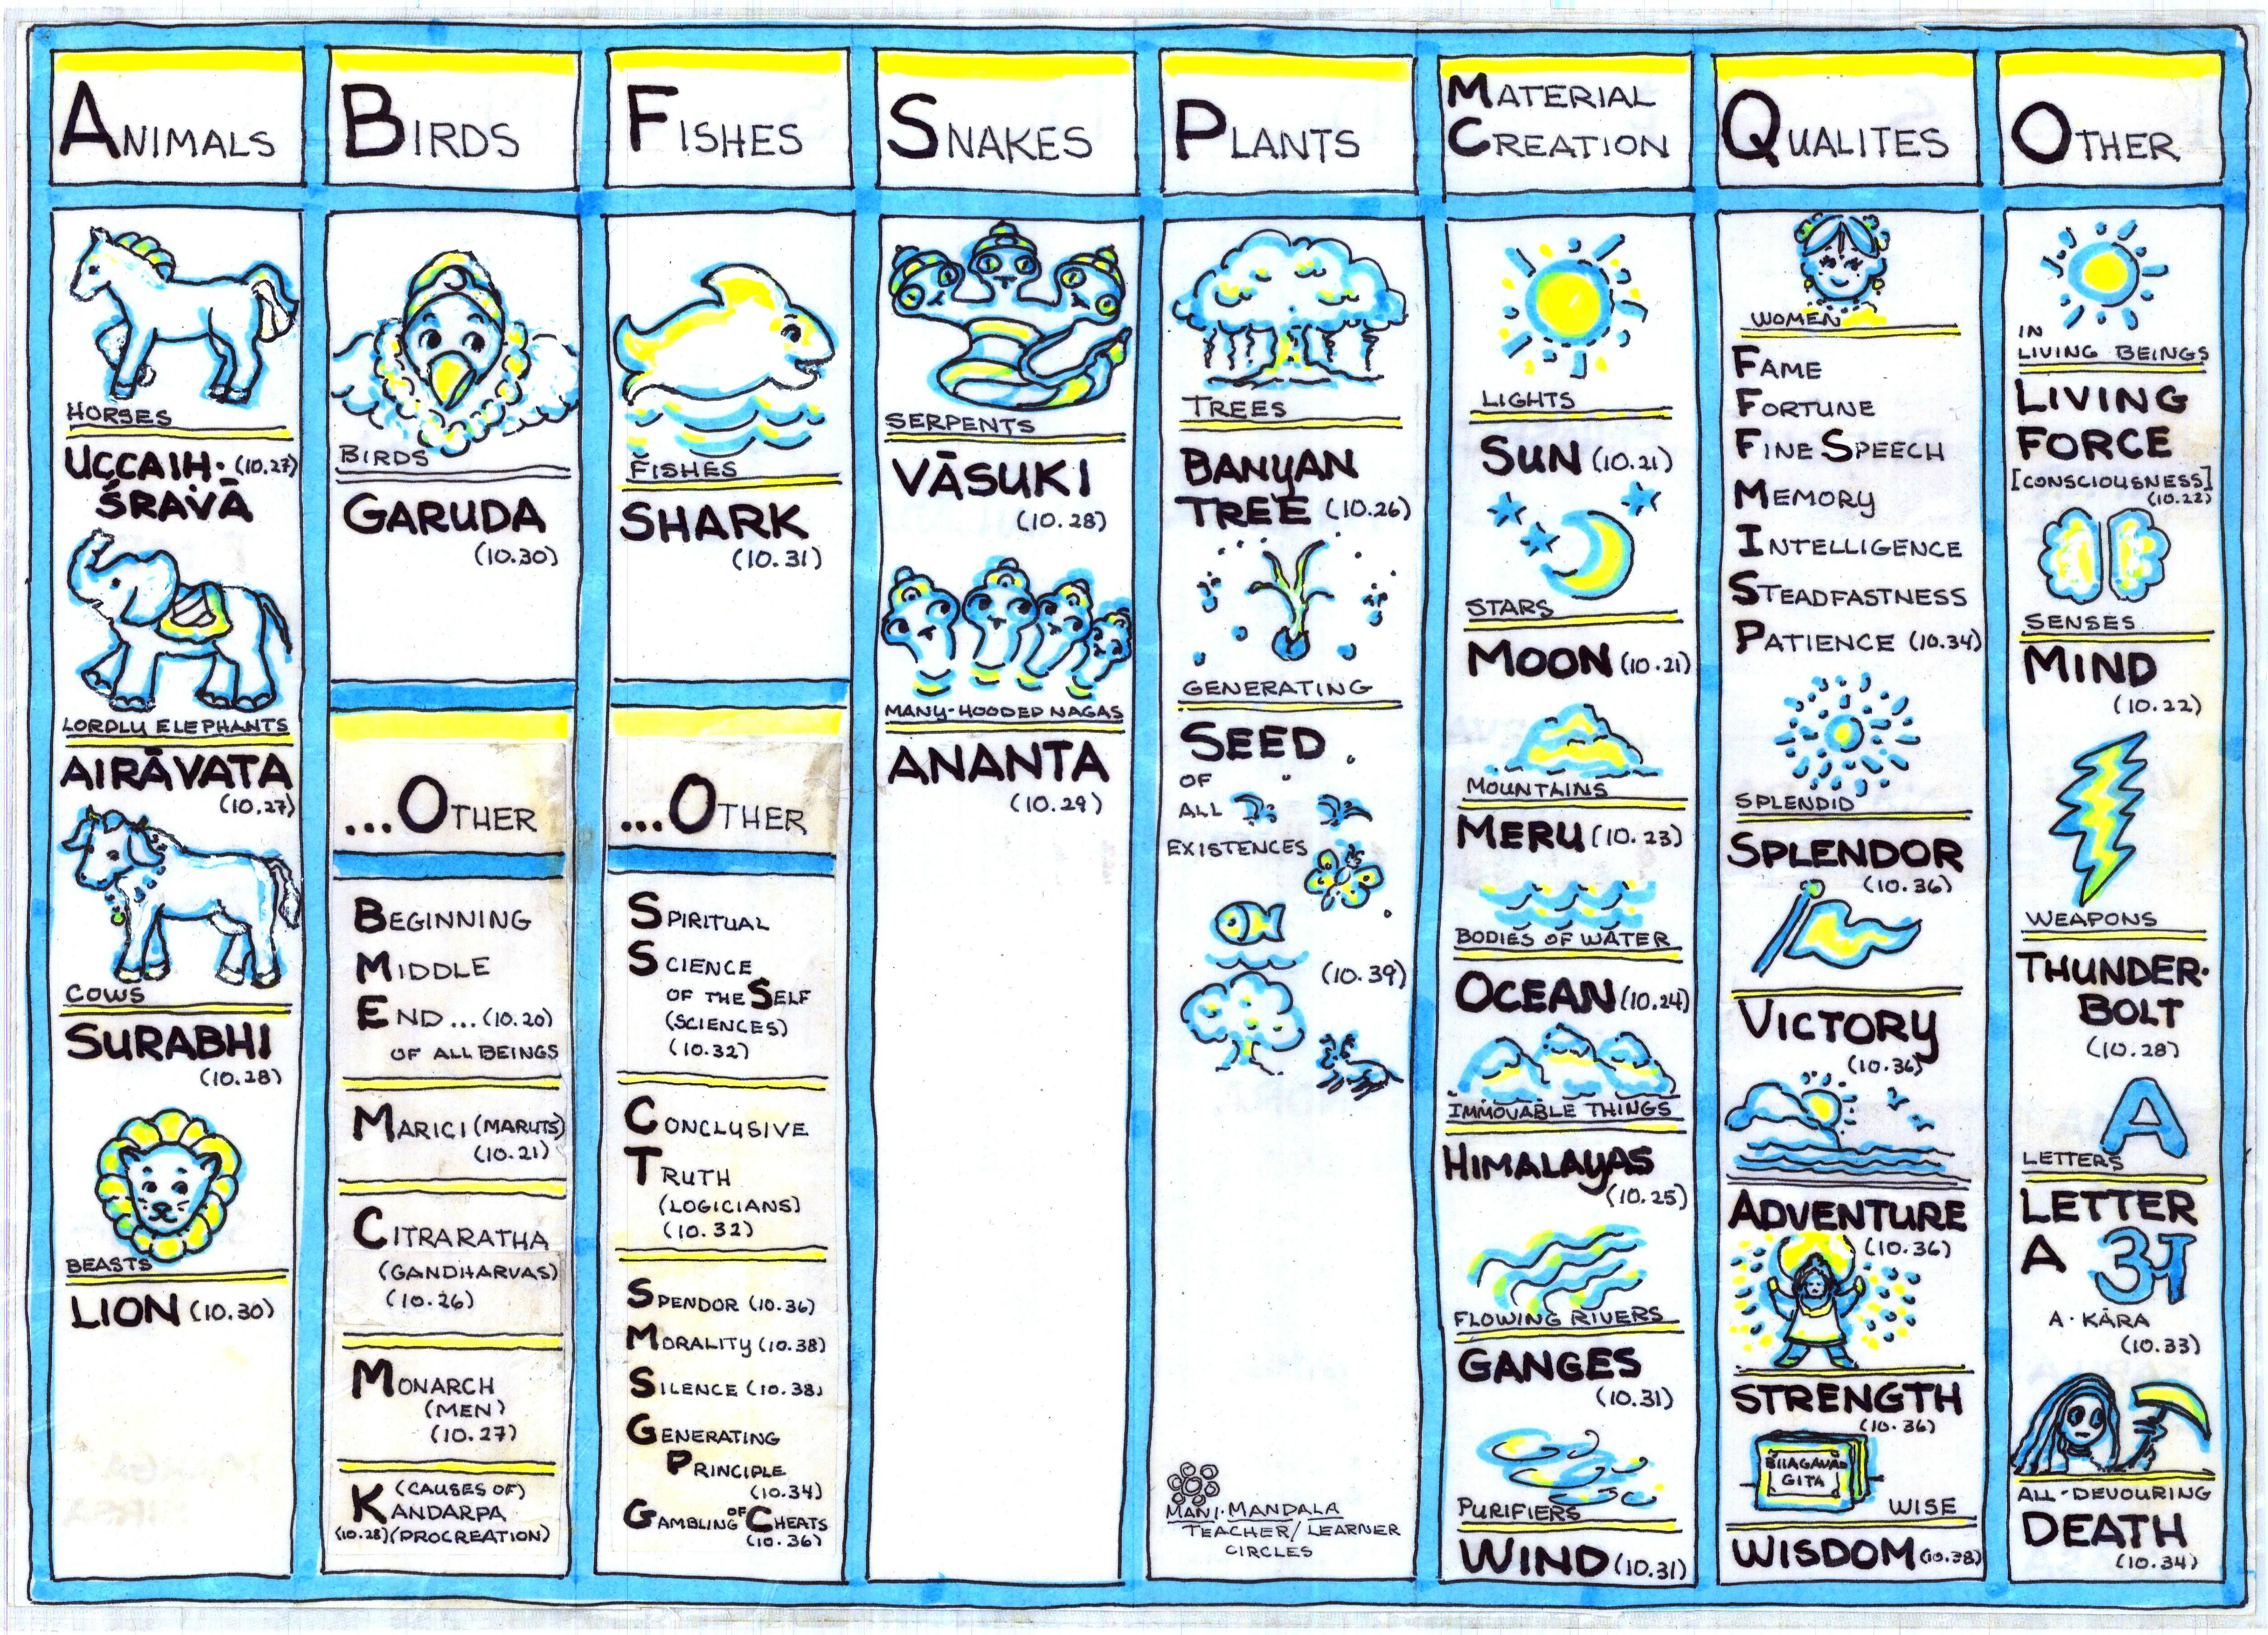 ANIMALS
HORSES
UCCAIH· (10.27)
ŚRAVĀ
LORDLY ELEPHANTS
AIRĀVATA
(10.27)
COWS
SURABHI
(10.28)
BEASTS
LION (10.30)
BIRDS
BIRDS
GARUDA
(10.30)
...OTHER
BEGINNING
MIDDLE
END... (10.20)
OF ALL BEINGS
MARICI (MARUTS)
(10.21)
CITRARATHA
(GANDHARVAS)
(10.26)
MONARCH
(MEN)
(10.27)
(CAUSES OF)
KANDARPA
(10.28) (PROCREATION)
FISHES
FISHES
SHARK
(10.31)
...OTHER
SPIRITUAL
SCIENCE
OF THE SELF
(SCIENCES)
(10.32)
CONCLUSIVE
TRUTH
(LOGICIANS)
(10.32)
SPENDOR (10.36)
MORALITY (10.38)
SILENCE (10.38)
GENERATING
PRINCIPLE
(10.34)
GAMBLING OF CHEATS
(10.36)
SNAKES
SERPENTS
VĀSUKI
(10.28)
MANY-HOODED NAGAS
ANANTA
(10.29)
PLANTS
TREES
BANYAN
TREE (10.26)
GENERATING
SEED
OF
ALL
EXISTENCES
(10.39)
MANI·MANDALA
TEACHER/LEARNER
CIRCLES
MATERIAL
CREATION
LIGHTS
SUN (10.21)
STARS
MOON (10.21)
MOUNTAINS
MERU (10.23)
BODIES OF WATER
OCEAN (10.24)
IMMOVABLE THINGS
HIMALAYAS
(10.25)
FLOWING RIVERS
GANGES
(10.31)
PURIFIERS
WIND (10.31)
QUALITES
WOMEN
FAME
FORTUNE
FINE SPEECH
MEMORY
INTELLIGENCE
STEADFASTNESS
PATIENCE (10.34)
SPLENDID
SPLENDOR
(10.36)
VICTORY
(10.36)
ADVENTURE
(10.36)
STRENGTH
(10.36)
BHAGAVAD
GITA
WISE
WISDOM (10.38)
OTHER
IN
LIVING BEINGS
LIVING
FORCE
[CONSCIOUSNESS]
(10.22)
SENSES
MIND
(10.22)
WEAPONS
THUNDER·
BOLT
(10.28)
A
LETTERS
LETTER
A अ
A·KĀRA
(10.33)
ALL-DEVOURING
DEATH
(10.34)